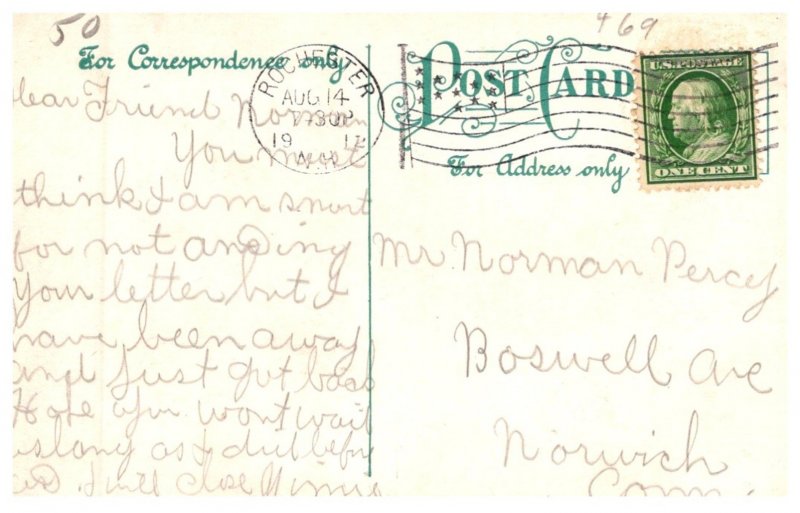 50
469
For Correspondence only
POST CARD
For Address only
ROCHESTER
AUG 14
730P
19 12
N.H.
U.S. POSTAGE
ONE CENT
Dear Friend Norman
You must
think I am snart
for not ansing
your letter but I
have been away
and just got back
Hope you wont wait
as long as I did befor
I will close
Mr Norman Percy
Boswell Ave
Norwich
Conn